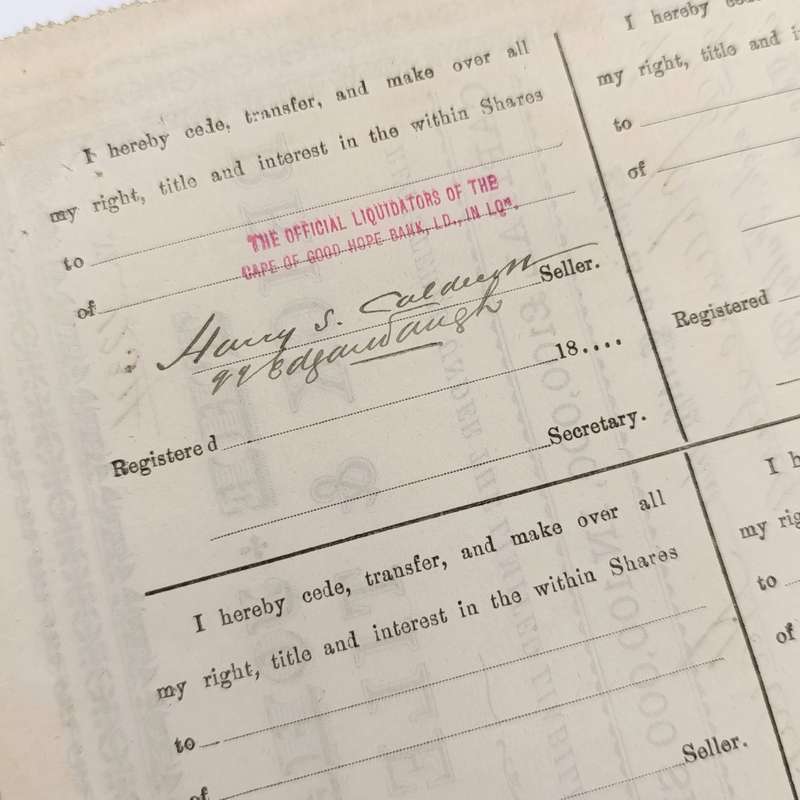 I hereby cede, transfer, and make over all
my right, title and interest in the within Shares
to
THE OFFICIAL LIQUIDATORS OF THE
CAPE OF GOOD HOPE BANK, LD., IN LQN.
of
Harry S. Caldecott Seller.
18....
Registered
Secretary.
I hereby cede, transfer, and make over all
my right, title and interest in the within Shares
to
of
Seller.
I hereby
my right, title and
to
of
Registered
I
my
to
of